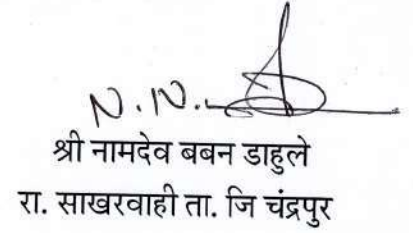 N. N.
श्री नामदेव बबन डाहुले
रा. साखरवाही ता. जि चंद्रपुर